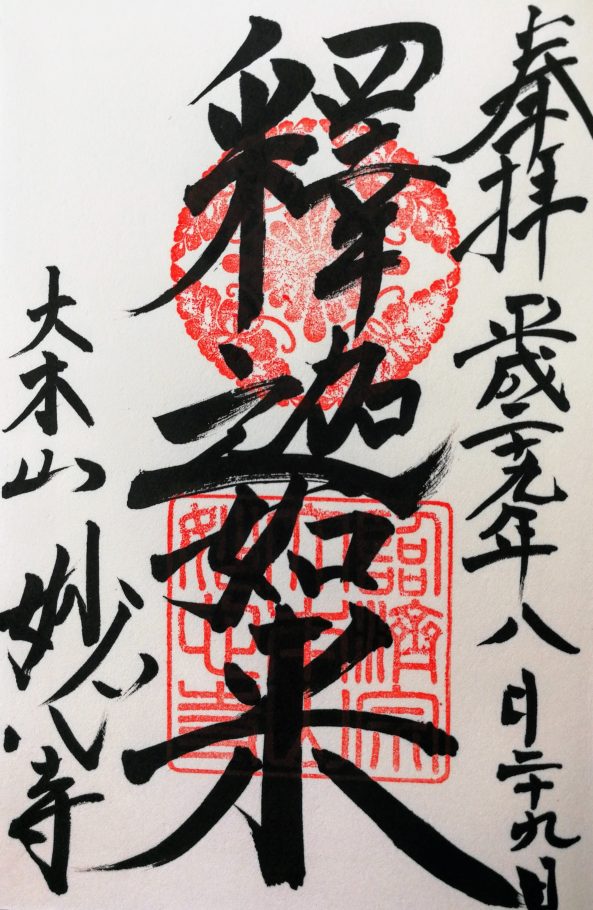 奉拝 平成二十九年八月二十九日
釋迦如来
大本山 妙心寺
臨濟宗
大本山
妙心寺